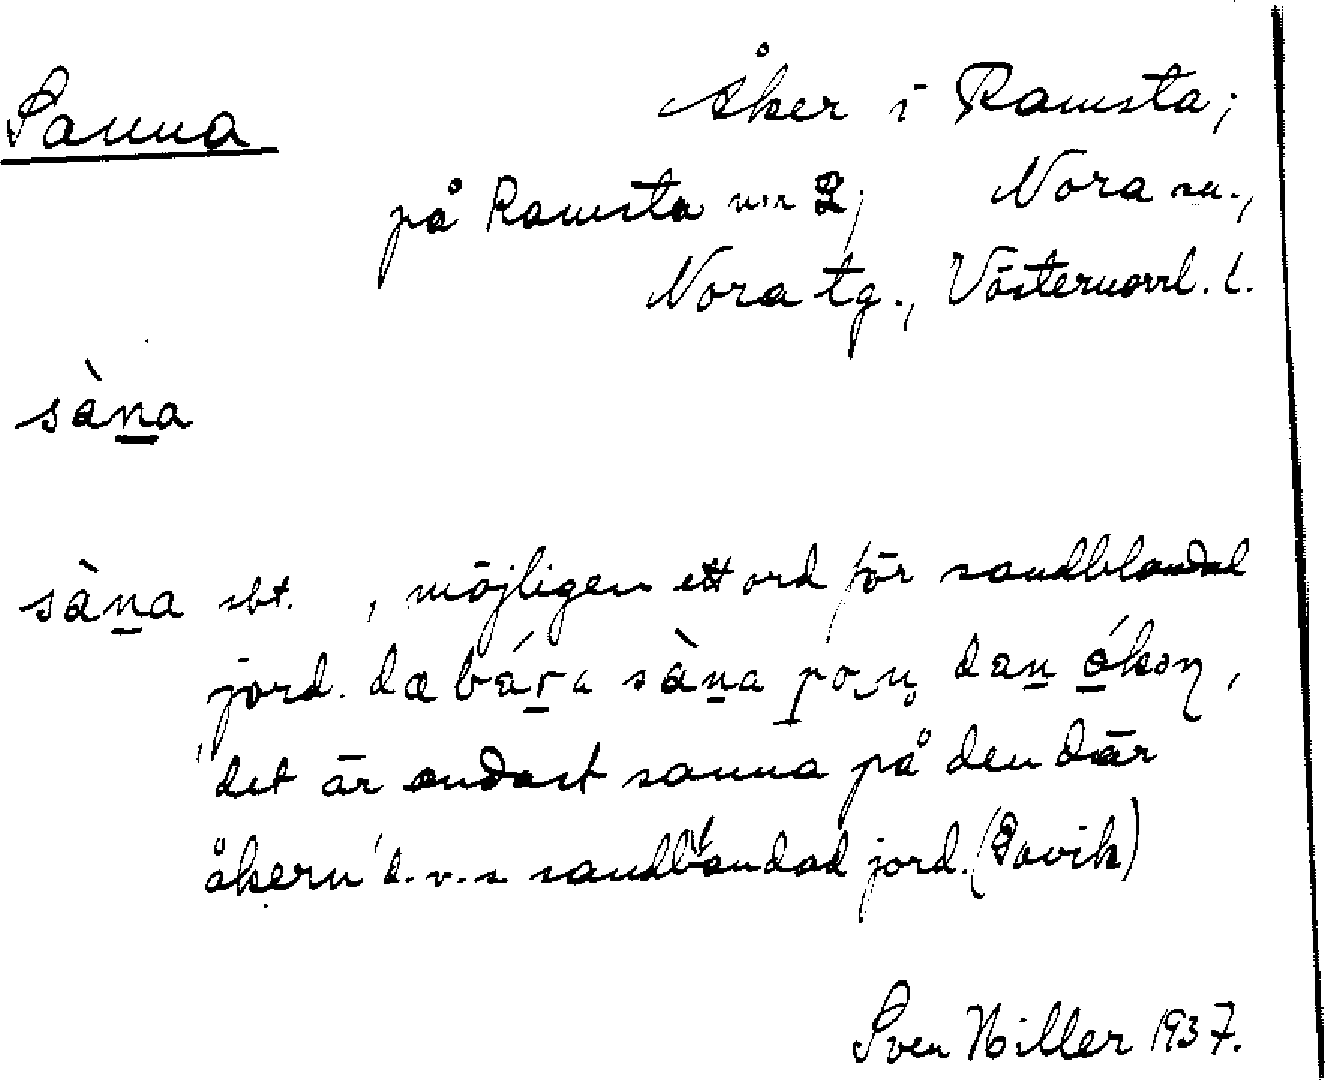 Sanna
Åker i Ramsta;
på Ramsta n:r 2; Nora sn.,
Nora tg., Västernorrl. l.
sàn̲a
sàn̲a sbt. , möjligen ett ord för sandblandad
jord. dæ bár̲a sàn̲a dan̲
'det är endast sanna på den där
åkern' d.v.s sandblandad jord. (Davik)
Sven Hiller 1937.